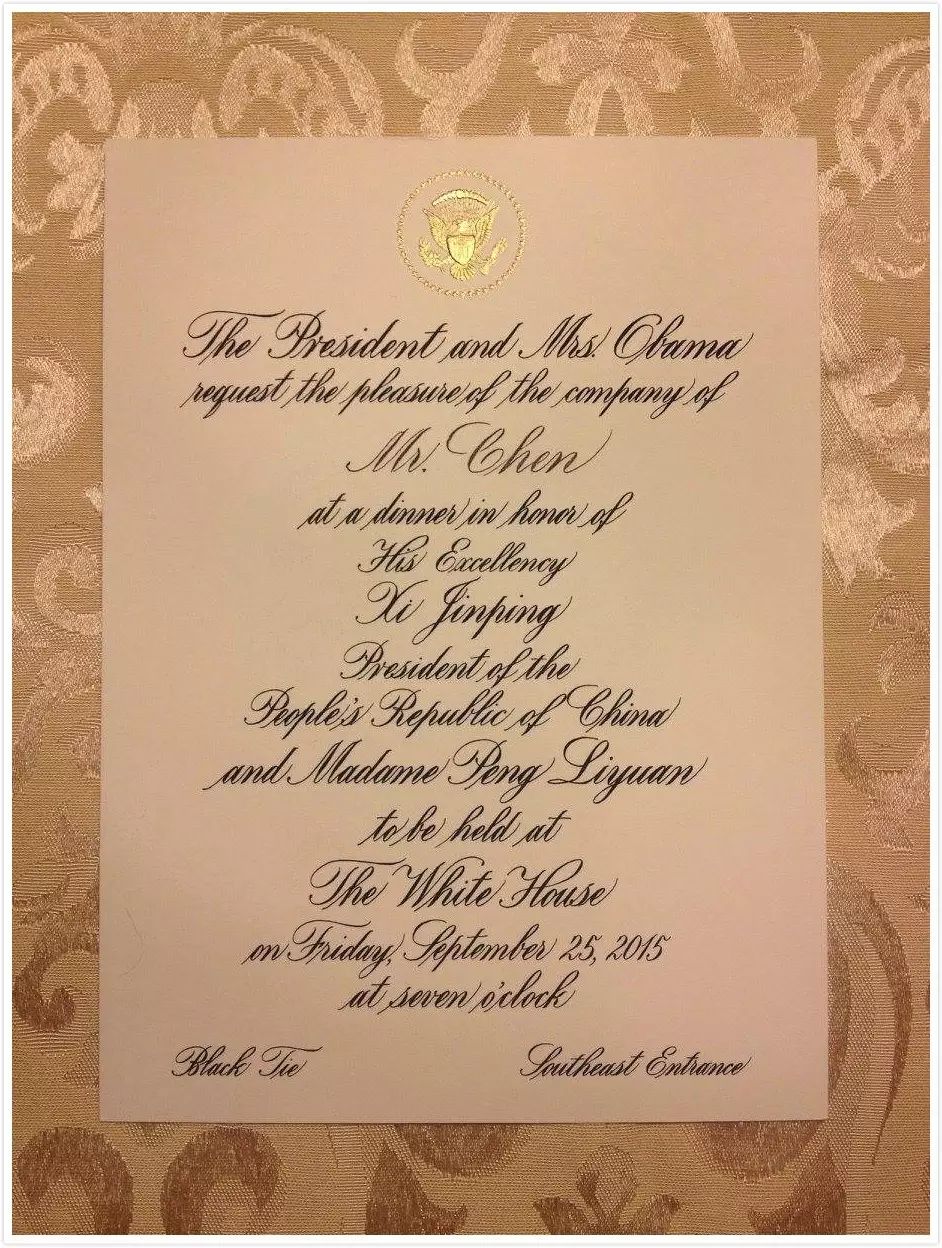 The President and Mrs. Obama
request the pleasure of the company of
Mr. Chen
at a dinner in honor of
His Excellency
Xi Jinping
President of the
People's Republic of China
and Madame Peng Liyuan
to be held at
The White House
on Friday, September 25, 2015
at seven o'clock
Black Tie
Southeast Entrance